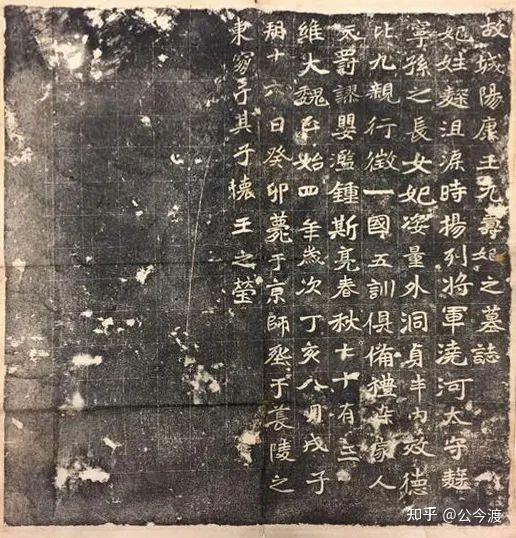 故城陽康王元壽妃之墓誌
妃姓麹沮渠時揚列將軍澆河太守麹
寧孫之長女妃姿量外洞貞牟內效德
比九親行徵一國五訓俱備禮染家人
天爵謬嬰濫鍾斯亮春秋七十有三
維大魏正始四年歲次丁亥八月戌子
朔十六日癸卯薨于京師丞于萇陵之
東窮于其子懷王之塋
知乎 @公今渡